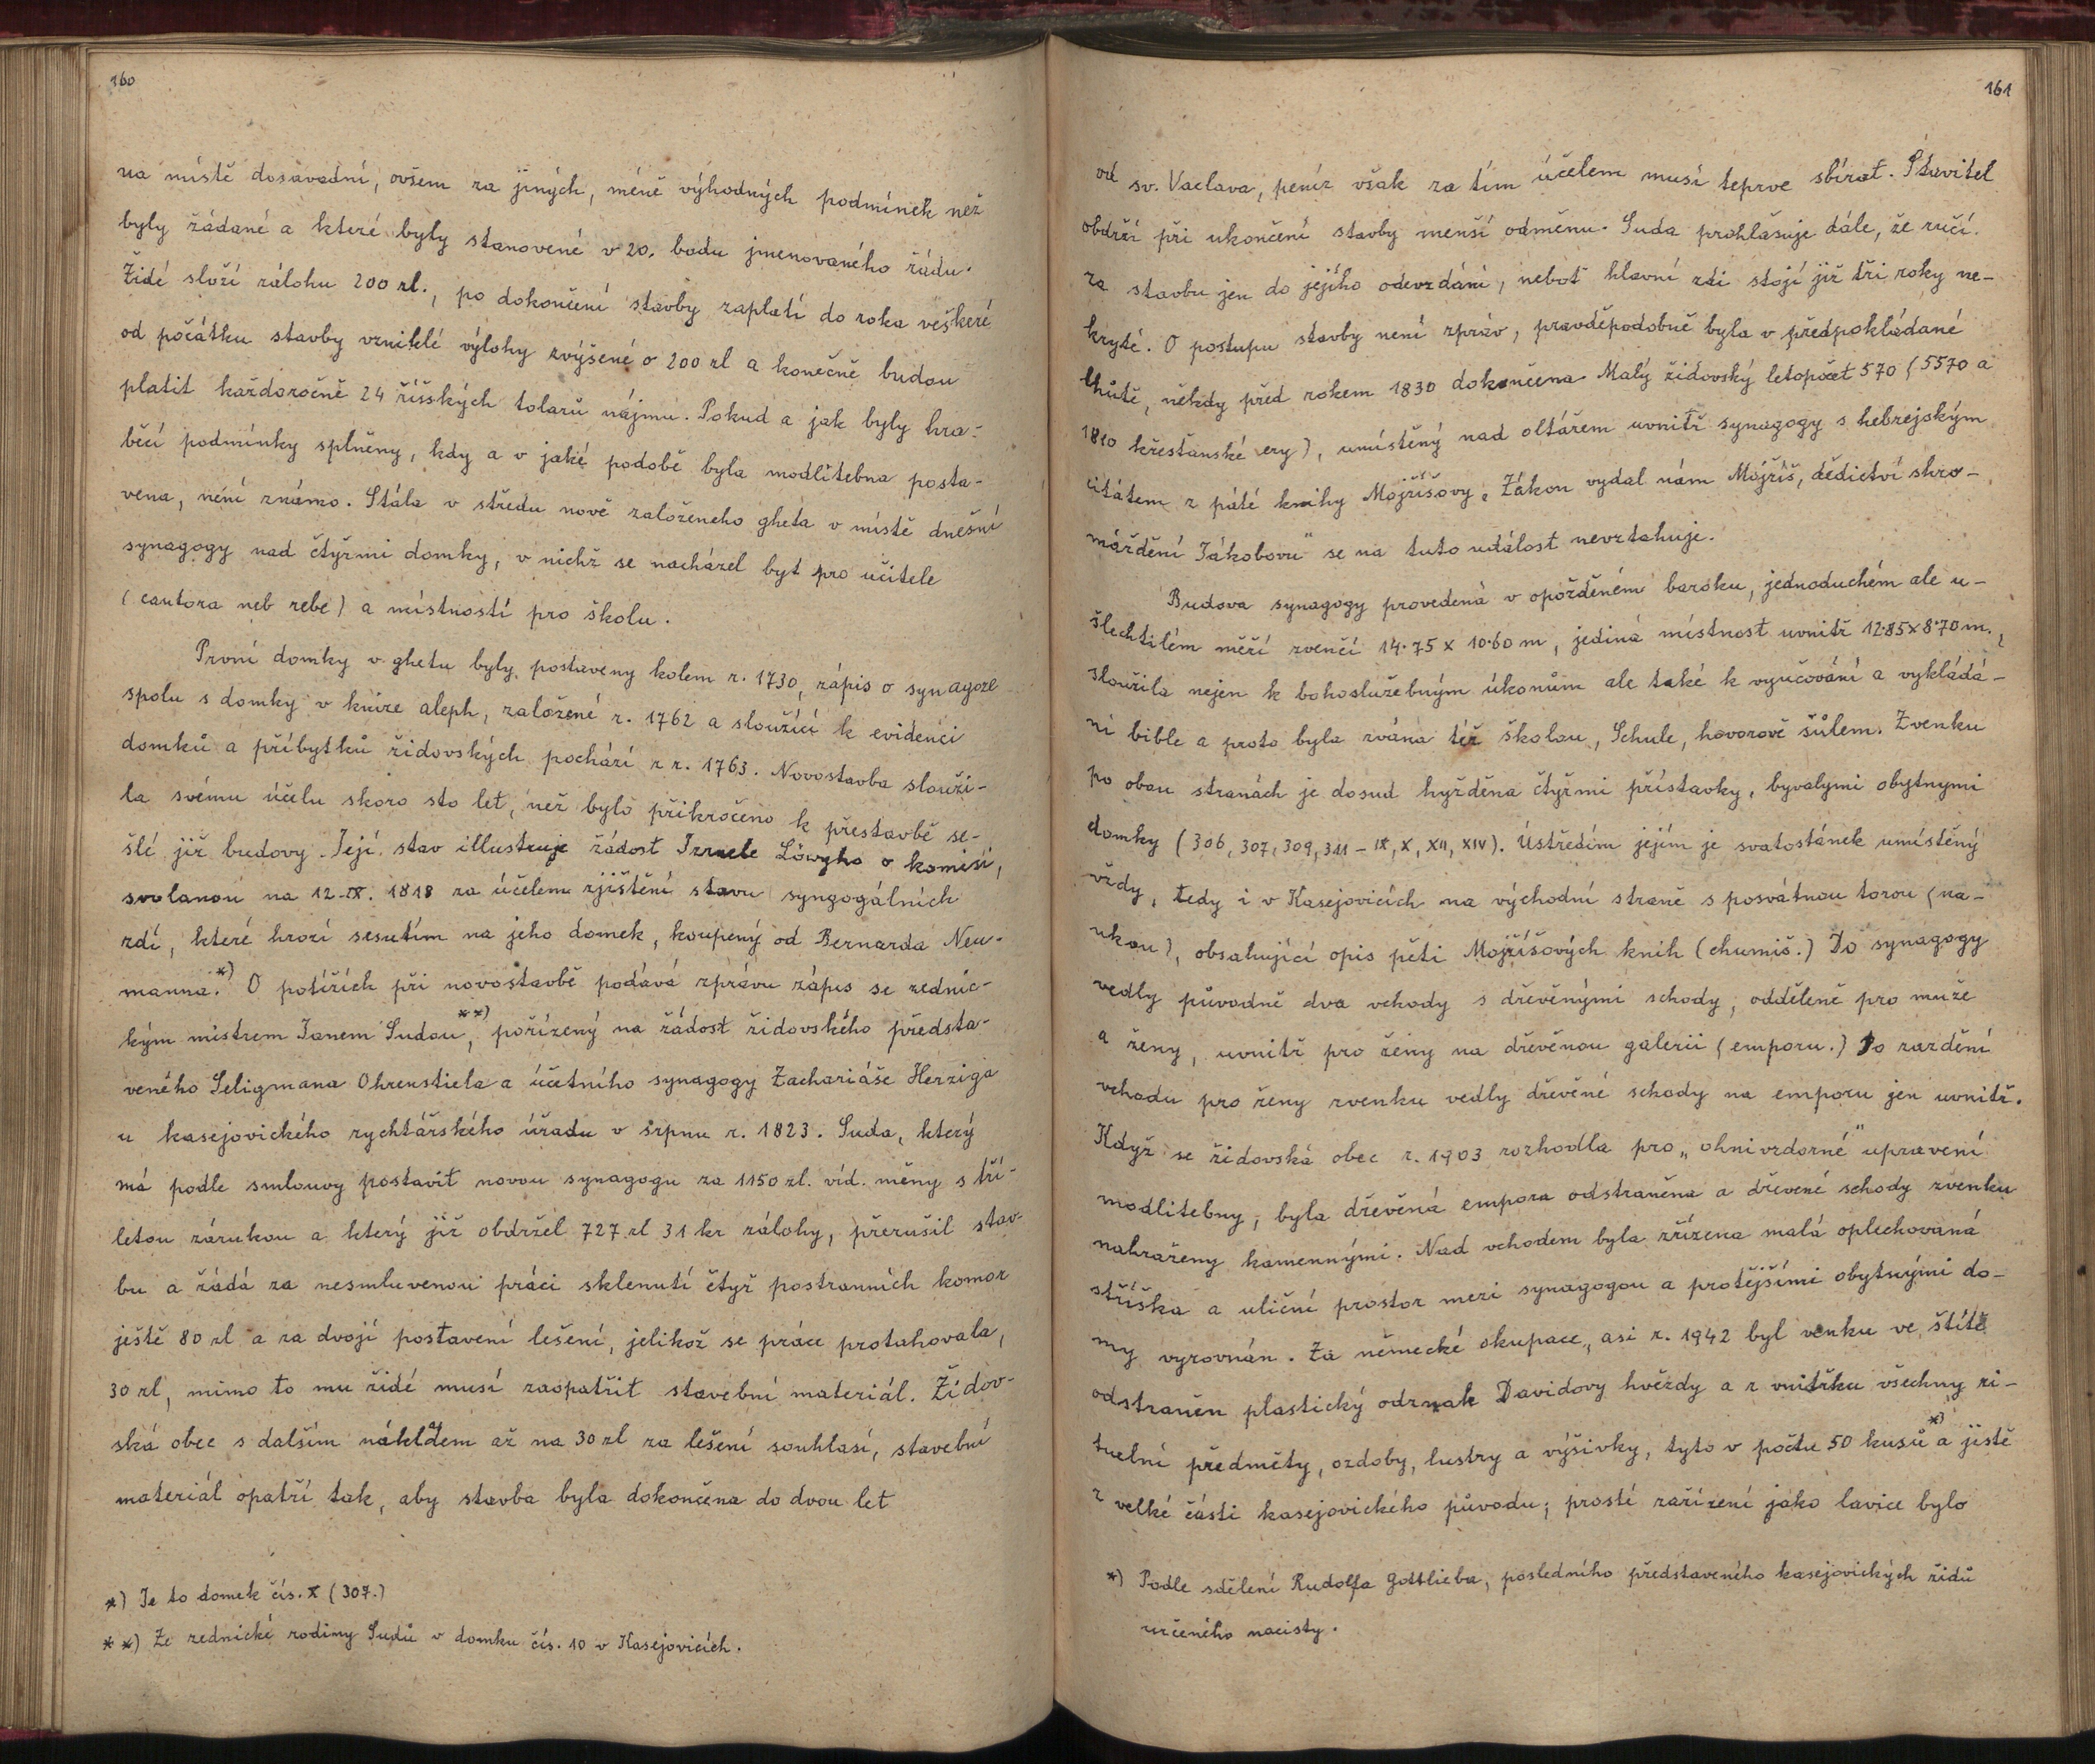 160
na místě dosavadní, ovšem za jiných, méně výhodných podmínek než
byly žádané a které byly stanovené v 20. bodu jmenovaného řádu.
Židé složí zálohu 200 zl., po dokončení stavby zaplatí do roka veškeré
od počátku stavby vzniklé výlohy zvýšené o 200 zl a konečně budou
platit každoročně 24 říšských tolarů nájmu. Pokud a jak byly hra-
běcí podmínky splněny, kdy a v jaké podobě byla modlitebna posta-
vena, není známo. Stála v středu nově založeného gheta v místě dnešní
synagogy nad čtyřmi domky, v nichž se nacházel byt pro učitele
(cantora neb rebe) a místností pro školu.
První domky v ghetu byly postaveny kolem r. 1730, zápis o synagoze
spolu s domky v knize aleph, založené r. 1762 a sloužící k evidenci
domků a příbytků židovských pochází z r. 1763. Novostavba slouži-
la svému účelu skoro sto let, než bylo přikročeno k přestavbě se-
šlé již budovy. Její stav illustruje žádost Izraele Löwyho o komisi,
svolanou na 12.IX. 1818 za účelem zjištění stavu syngogálních
zdí, které hrozí sesutím na jeho domek, koupený od Bernarda Neu-
manna.*) O potížích při novostavbě podává zprávu zápis se zednic-
kým mistrem Janem Sudou,**) pořízený na žádost židovského předsta-
veného Seligmana Ohrenstiela a účetního synagogy Zachariáše Herziga
u kasejovického rychtářského úřadu v srpnu r. 1823. Suda, který
má podle smlouvy postavit novou synagogu za 1150 zl. víd. měny s tří-
letou zárukou a který již obdržel 727 zl 31 kr zálohy, přerušil stav-
bu a žádá za nesmluvenou práci sklenutí čtyř postranních komor
ještě 80 zl a za dvojí postavení lešení, jelikož se práce protahovala,
30 zl, mimo to mu židé musí zaopatřit stavební materiál. Židov-
ská obec s dalším nákladem až na 30 zl za lešení souhlasí, stavební
materiál opatří tak, aby stavba byla dokončena do dvou let
*) Je to domek čís. X (307.)
**) Ze zednické rodiny Sudů v domku čís. 10 v Kasejovicích.
161
od sv. Vaclava, peníz však za tím účelem musí teprve sbírat. Stavitel
obdrží při ukončení stavby menší odměnu. Suda prohlašuje dále, že ručí
za stavbu jen do jejího odevzdání, neboť hlavní zdi stojí již tři roky ne-
kryté. O postupu stavby není zpráv, pravděpodobně byla v předpokládané
lhůtě, někdy před rokem 1830 dokončena. Malý židovský letopočet 570 (5570 a
1810 křesťanské ery), umístěný nad oltářem uvnitř synagogy s hebrejským
citátem z páté knihy Mojžíšovy „Zákon vydal nám Mojžíš, dědictví shro-
máždění Jákobovu" se na tuto událost nevztahuje.
Budova synagogy provedená v opožděném baroku, jednoduchém ale u-
šlechtilém měří zvenčí 14·75 x 10·60 m, jediná místnost uvnitř 12·85x8·70 m.,
sloužila nejen k bohoslužebným úkonům ale také k vyučování a vykládá-
ní bible a proto byla zvána též školou, Schule, hovorově šůlem. Zvenku
po obou stranách je dosud hyžděna čtyřmi přístavky, byvalymi obytnymi
domky (306, 307, 309, 311 – IX, X, XII, XIV). Ústředím jejím je svatostánek umístěný
vždy, tedy i v Kasejovicích na východní straně s posvátnou torou (na-
ukou), obsahující opis pěti Mojžíšových knih (chumiš.) Do synagogy
vedly původně dva vchody s dřevěnými schody, odděleně pro muže
a ženy, uvnitř pro ženy na dřevěnou galerii (emporu.) Po zazdění
vchodu pro ženy zvenku vedly dřevěné schody na emporu jen uvnitř.
Když se židovská obec r. 1903 rozhodla pro „ohnivzdorné" upravení
modlitebny, byla dřevěná empora odstraněna a dřevené schody zvenku
nahraženy kamennými. Nad vchodem byla zřízena malá oplechovaná
stříška a uliční prostor mezi synagogou a protějšími obytnými do-
my vyrovnán. Za německé okupace, asi r. 1942 byl venku ve štítě
odstraněn plastický odznak Davidovy hvězdy a z vnitřku všechny ri-
tuelní předměty, ozdoby, lustry a výšivky, tyto v počtu 50 kusů*) a jistě
z velké části kasejovického původu; prosté zařízení jako lavice bylo
*) Podle sdělení Rudolfa Gottlieba, posledního představeného kasejovických židů
určeného nacisty.